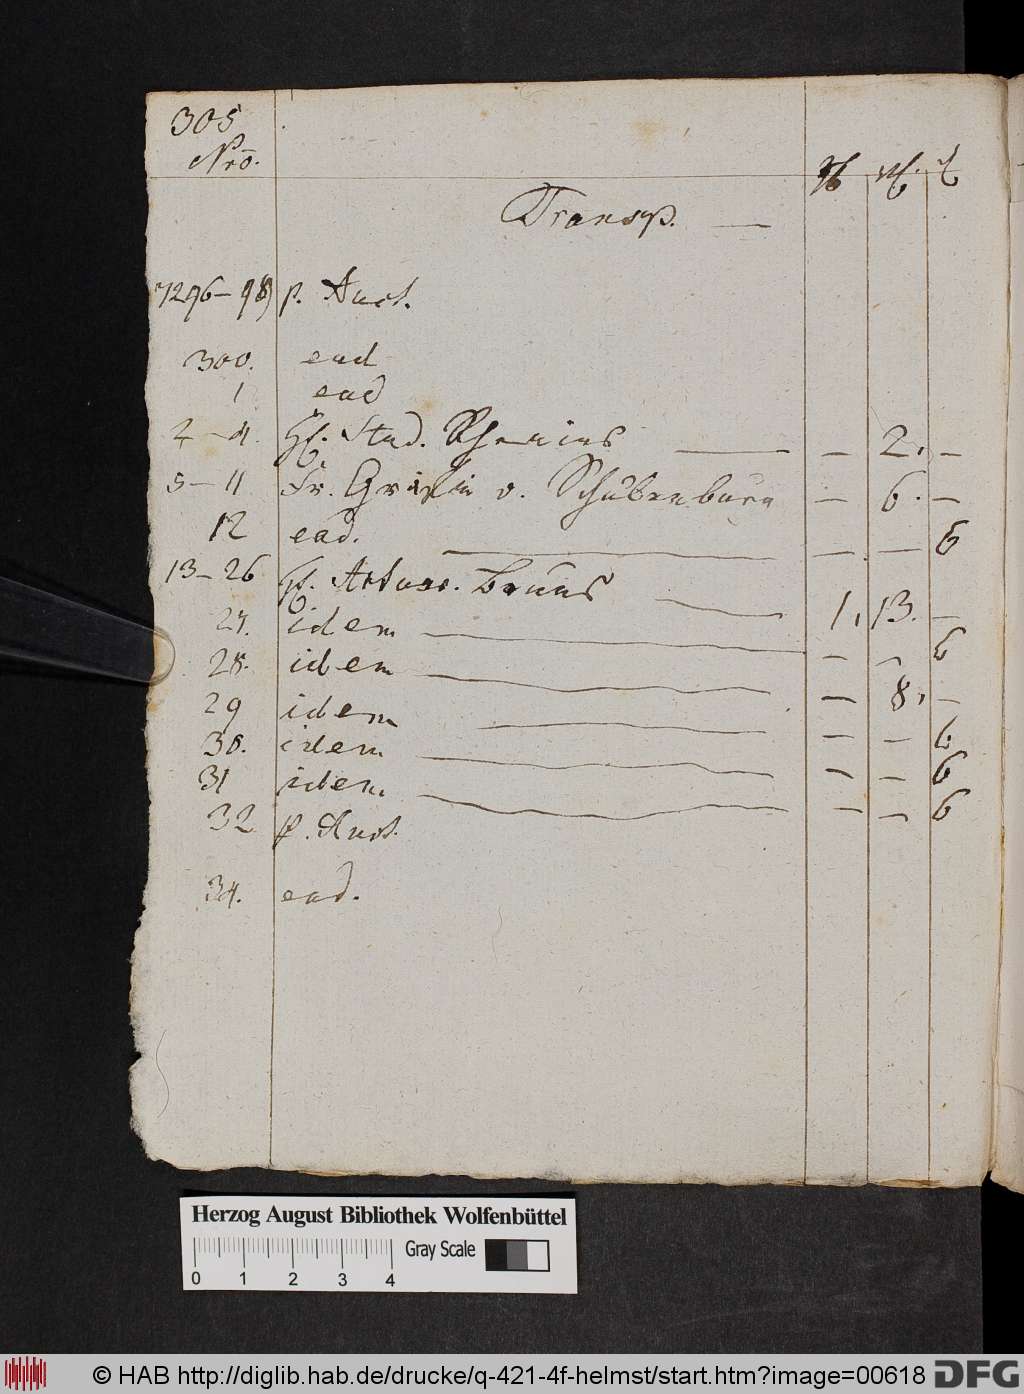 305
Nro.
Transp.
7296-98) p. Auct.
300. ead
1 ead
2-4. H. Stud. — 2. —
5-11 Fr. Gräfin v. Schulenburg — 6. —
12 ead. — — 6
13-26 H. Actuar. Bruns 1. 13. —
27. idem — — 6
28. idem — 8. —
29 idem — — 6
30. idem — — 6
31 idem — — 6
32 p. Auct.
34. ead.
Herzog August Bibliothek Wolfenbüttel
Gray Scale
0 1 2 3 4
© HAB http://diglib.hab.de/drucke/q-421-4f-helmst/start.htm?image=00618 DFG